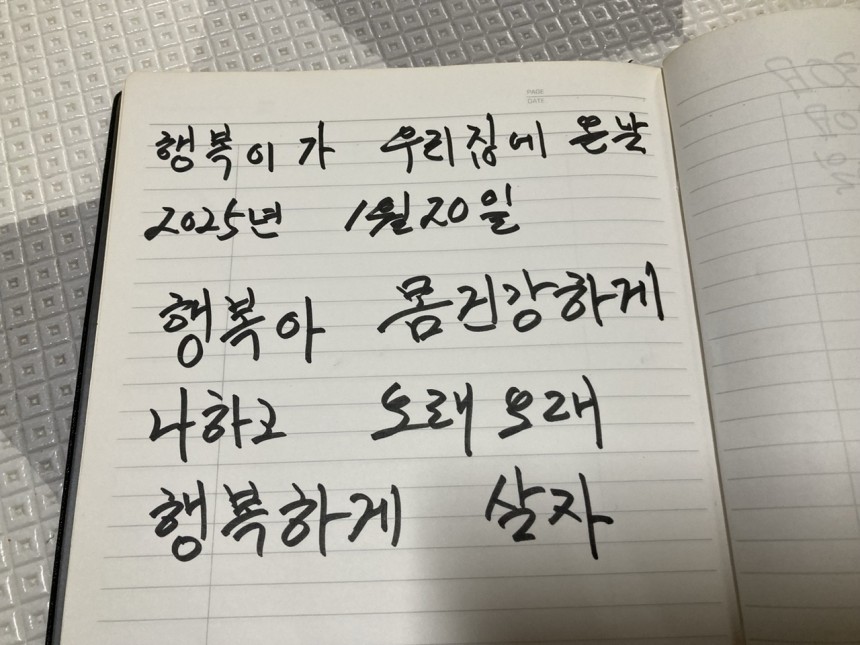 PAGE
DATE
행복이가 우리집에 온날
2025년 1월 20일
행복아 몸건강하게
나하고 오래오래
행복하게 살자